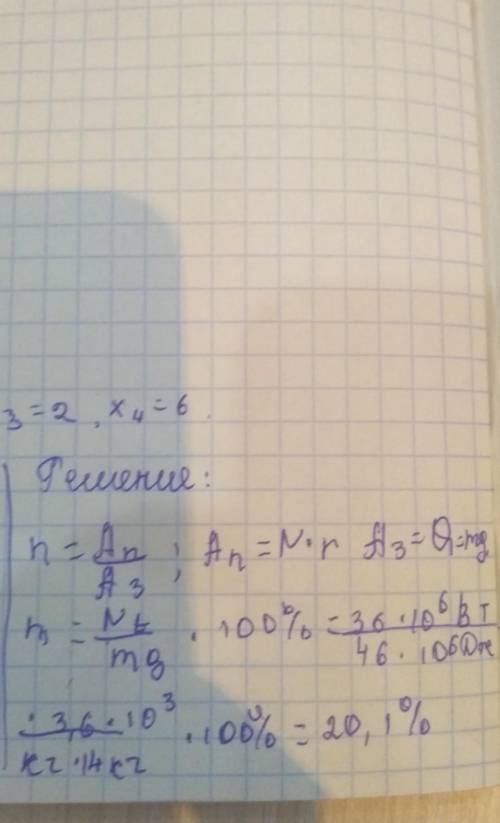 3 = 2, x₄ = 6.
Решение:
n = Aп/Aз; Aп = N·t Aз = Q = mq
n = Nt/mq · 100% = 36·10⁶ Вт/46·10⁶ Дж
·3,6·10³/кг·14кг · 100% = 20,1%